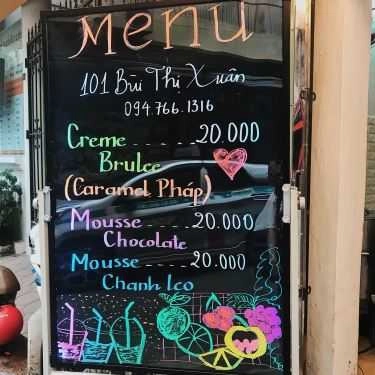 Menu
101 Bùi Thị Xuân
094.766.1316
Creme 20.000
Brulee
(Caramel Pháp)
Mousse 20.000
Chocolate
Mousse 20.000
Chanh Leo